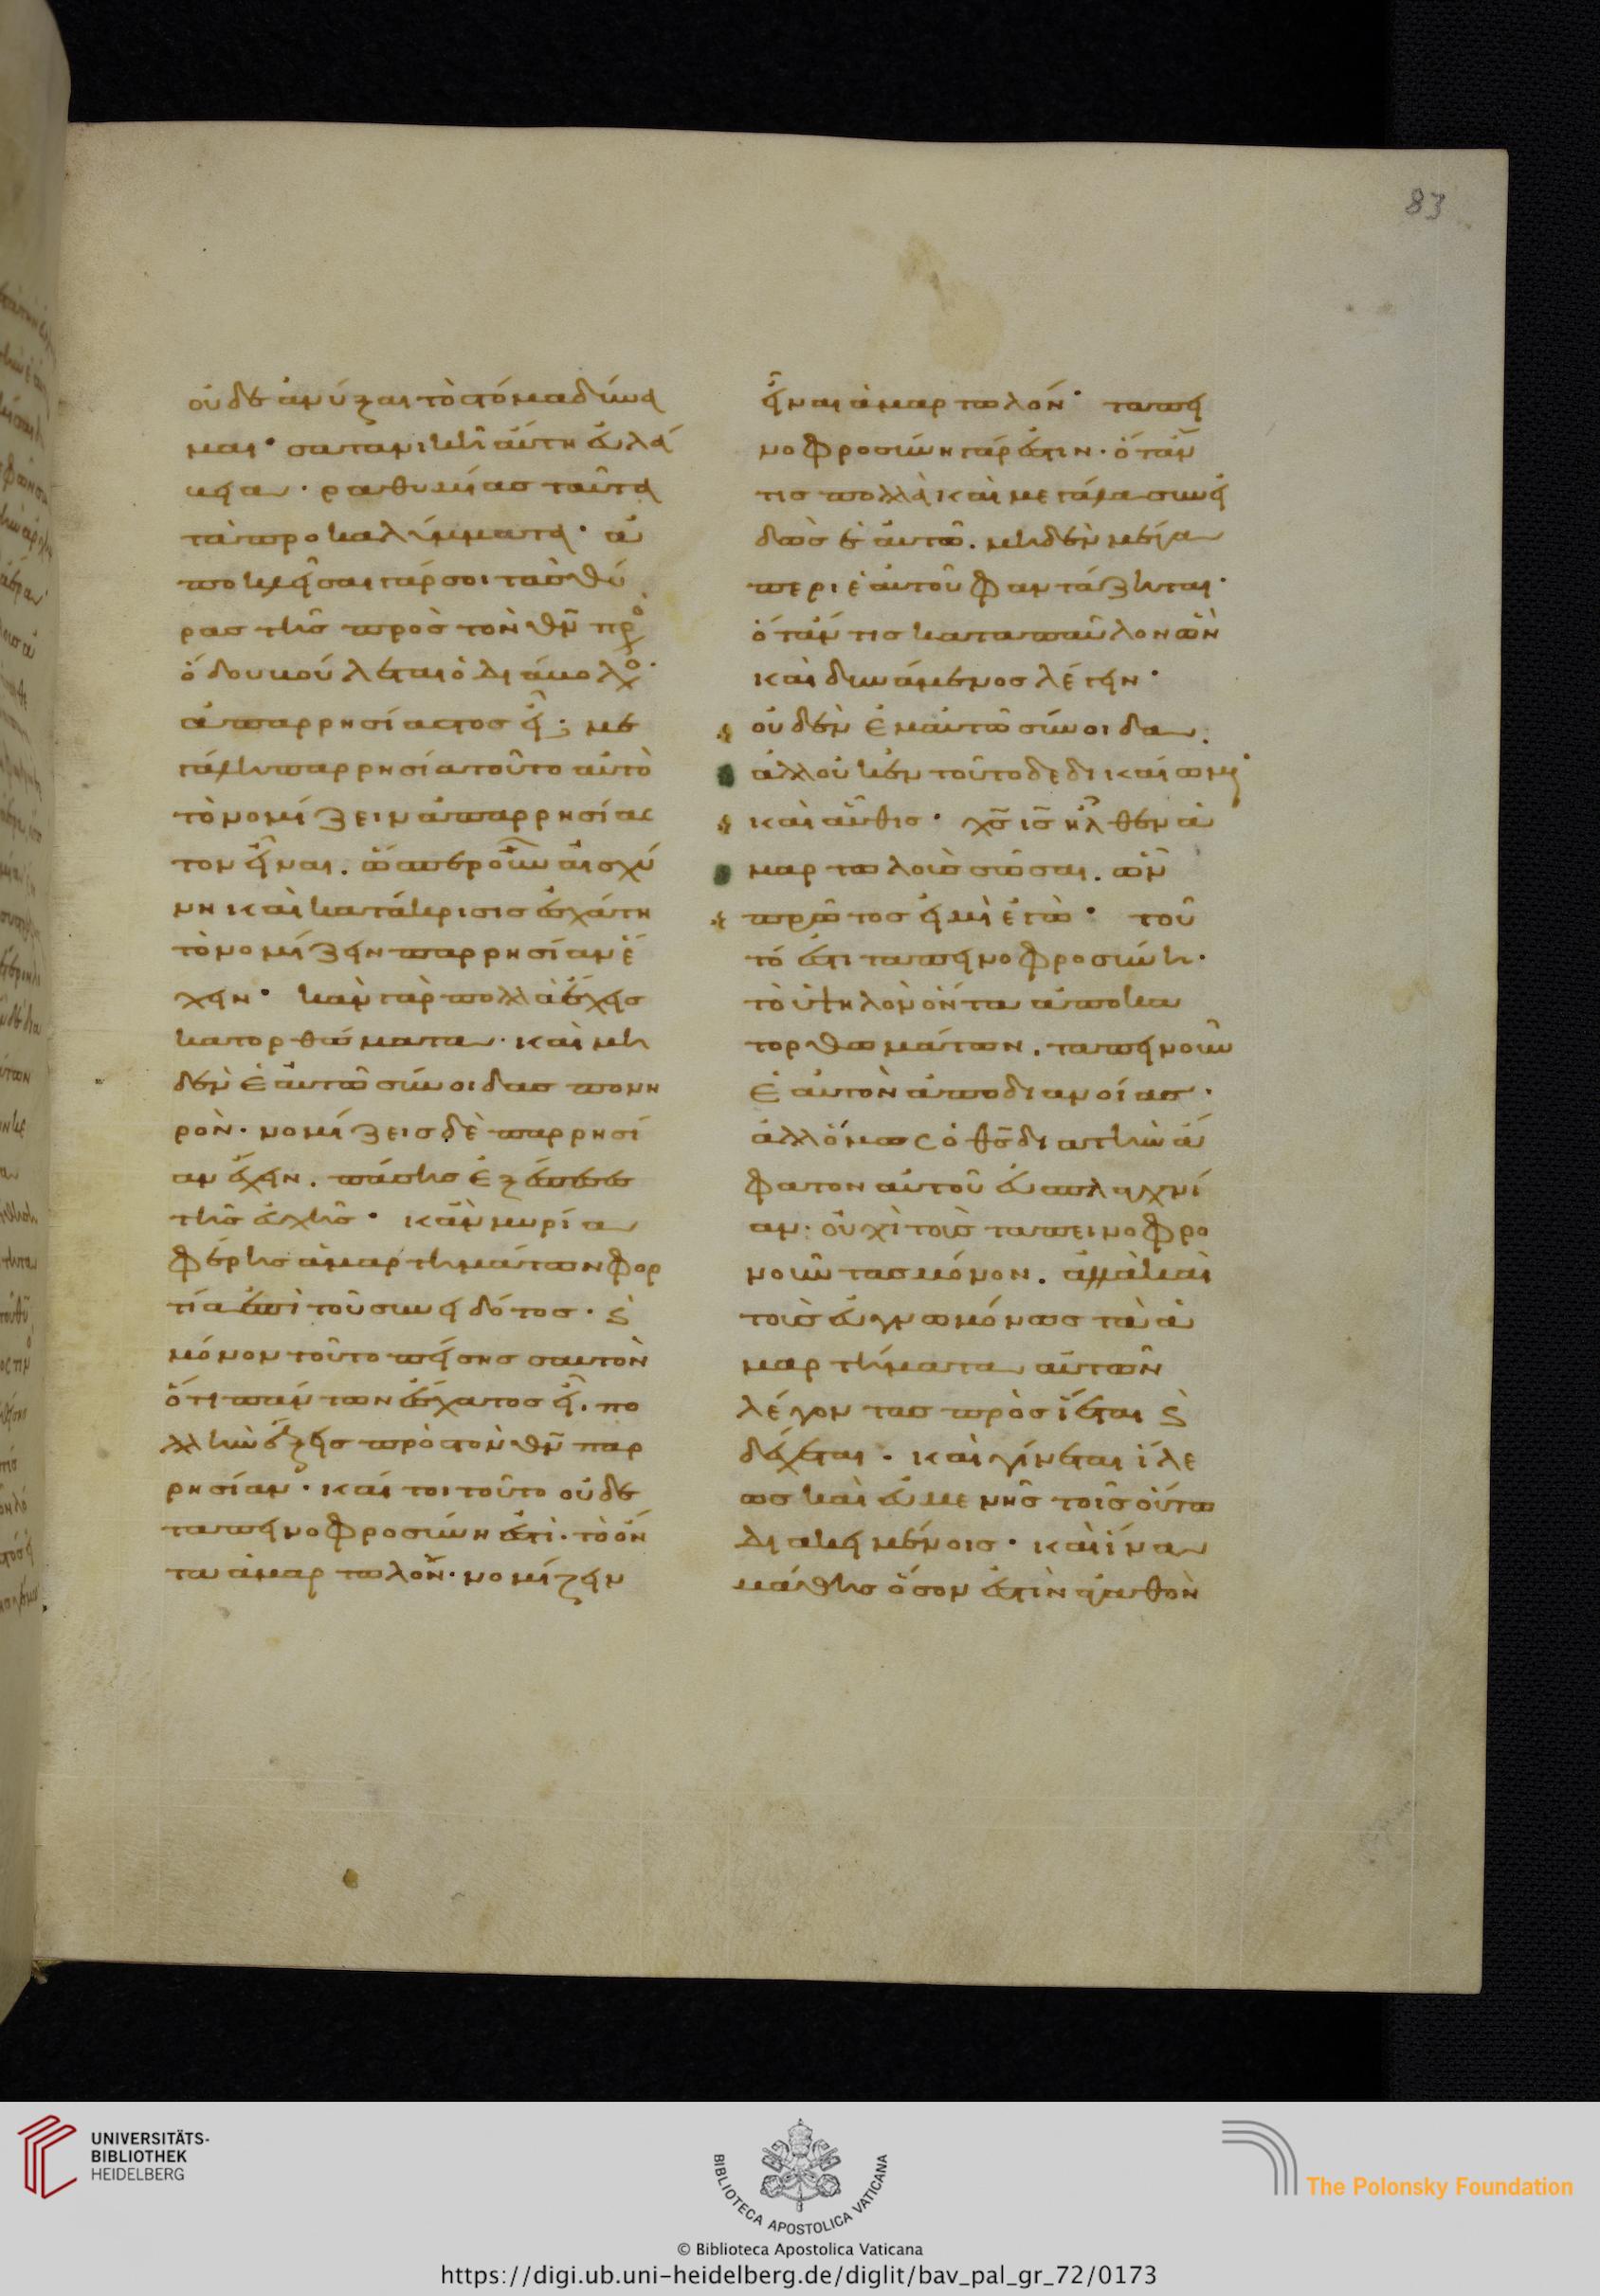 83
οὐδὲ ἀνύξαι τὸ στόμα δύνα
μαι· σατανικὴ αὕτη εὐλά
βεια· ραθυμίας ταῦτα
τὰ προκαλύμματα· ἀ
ποκλεῖσαι γάρ σοι τὰς θύ
ρας τῆς πρὸς τὸν θν̅ προ
όδου βούλεται ὁ διάβολο·
ἀπαρρησίαστος εἶ; με
γάλη παρρησία τοῦτο αὐτὸ
τὸ νομίζειν ἀπαρρησίασ
τον εἶναι. ὥσπερ οὖν αἰσχύ
νη καὶ κατάκρισις ἐσχάτη
τὸ νομίζειν παρρησίαν ἔ
χειν· κἂν γὰρ πολλὰ ἔχεις
κατορθώματα· καὶ μη
δὲν ἑαυτῶ σύνοιδας πονη
ρὸν· νομίζεις δὲ παρρησί
αν ἔχειν. πάσης ἐξέπεσες
τῆς εὐχῆς· κἂν μυρία
φέρης ἁμαρτημάτων φορ
τία ἐπὶ τοῦ συνειδότος· ϛ̀
μόνον τοῦτο πείσης σαυτὸν
ὅτι πάντων ἔσχατος εἶ. πο
λλὴν ἕξεις πρὸς τὸν θν̅ παρ
ρησίαν· καίτοι τοῦτο οὐδὲ
ταπεινοφροσύνη ἐστὶ· τὸ ὄν
τα ἁμαρτωλὸν· νομίζειν
εἶναι ἁμαρτωλόν· ταπει
νοφροσύνη γάρ ἐστιν· ὅταν
τις πολλὰ καὶ μεγάλα συνει
δὼς ἑαυτῶ. μηδὲν μέγα
περὶ ἑαυτοῦ φαντάζηται·
ὅταν τις κατὰ παῦλον ὢν
καὶ δυνάμενος λέγειν·
οὐδὲν ἐμαυτῶ σύνοιδα.
ἀλλ οὐκ ἐν τούτο δεδικαίωμαι·
καὶ αὖθις· χς̅ ις̅ ἦλθεν ἁ
μαρτωλοὺς σῶσαι. ὧν
πρῶτος εἰμὶ ἐγὼ· τοῦ
τό ἐστι ταπεινοφροσύνη·
τὸ ὑψηλὸν ὄντα ἀπὸ κα
τορθωμάτων. ταπεινοῦν
ἑαυτὸν ἀπὸ διανοίας·
ἀλλ ὅμως ὁ θς̅ διὰ τὴν ἄ
φατον αὐτοῦ εὐσπλαγχνί
αν· οὐχὶ τοὺς ταπεινοφρο
νοῦντας μόνον. ἀλλὰ καὶ
τοὺς εὐγνωμόνως τὰ ἁ
μαρτήματα αὐτῶν
λέγοντας προσίεται ϛ̀
δέχεται. καὶ γίνεται ἵλε
ως καὶ εὐμενὴς τοῖς οὕτω
διακειμένοις· καὶ ἵνα
μάθης ὅσον ἐστὶν ἀγαθὸν
UNIVERSITÄTS-
BIBLIOTHEK
HEIDELBERG
BIBLIOTECA APOSTOLICA VATICANA
The Polonsky Foundation
© Biblioteca Apostolica Vaticana
https://digi.ub.uni-heidelberg.de/diglit/bav_pal_gr_72/0173